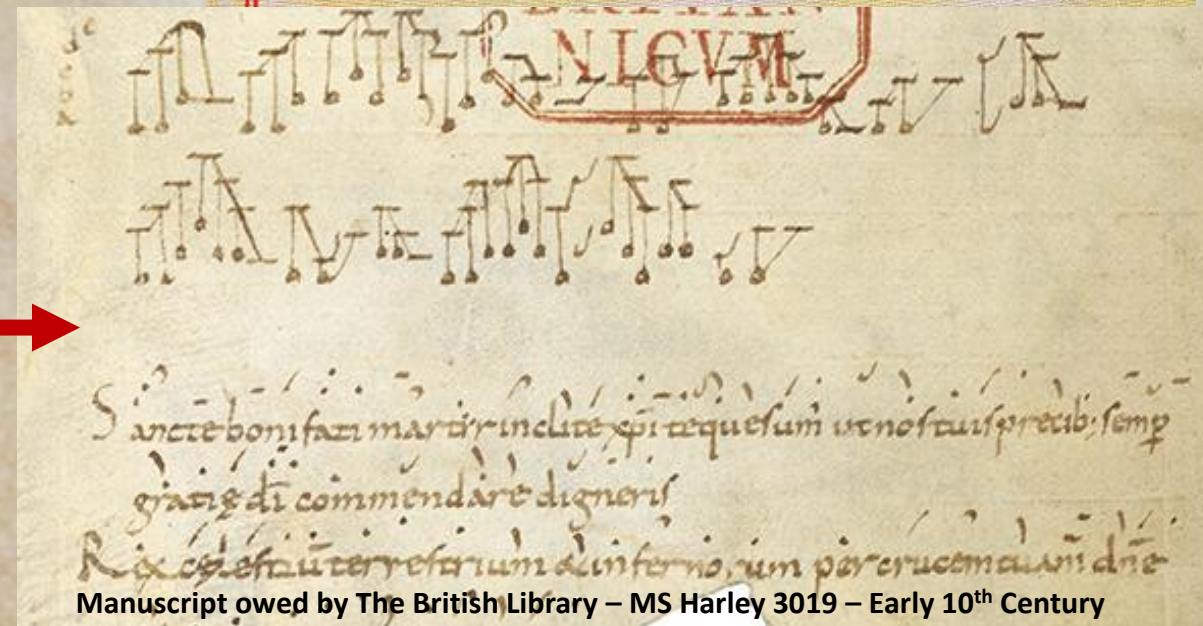 BRITAN
NICVM
Sancte bonifati martir inclite xp̄i te quesum̄ ut nos tuis precib; semp̄
gratię dī commendare digneris
Rex cęlestiū terrestrium & infernorum per crucem tuam dn̄e
Manuscript owed by The British Library – MS Harley 3019 – Early 10th Century